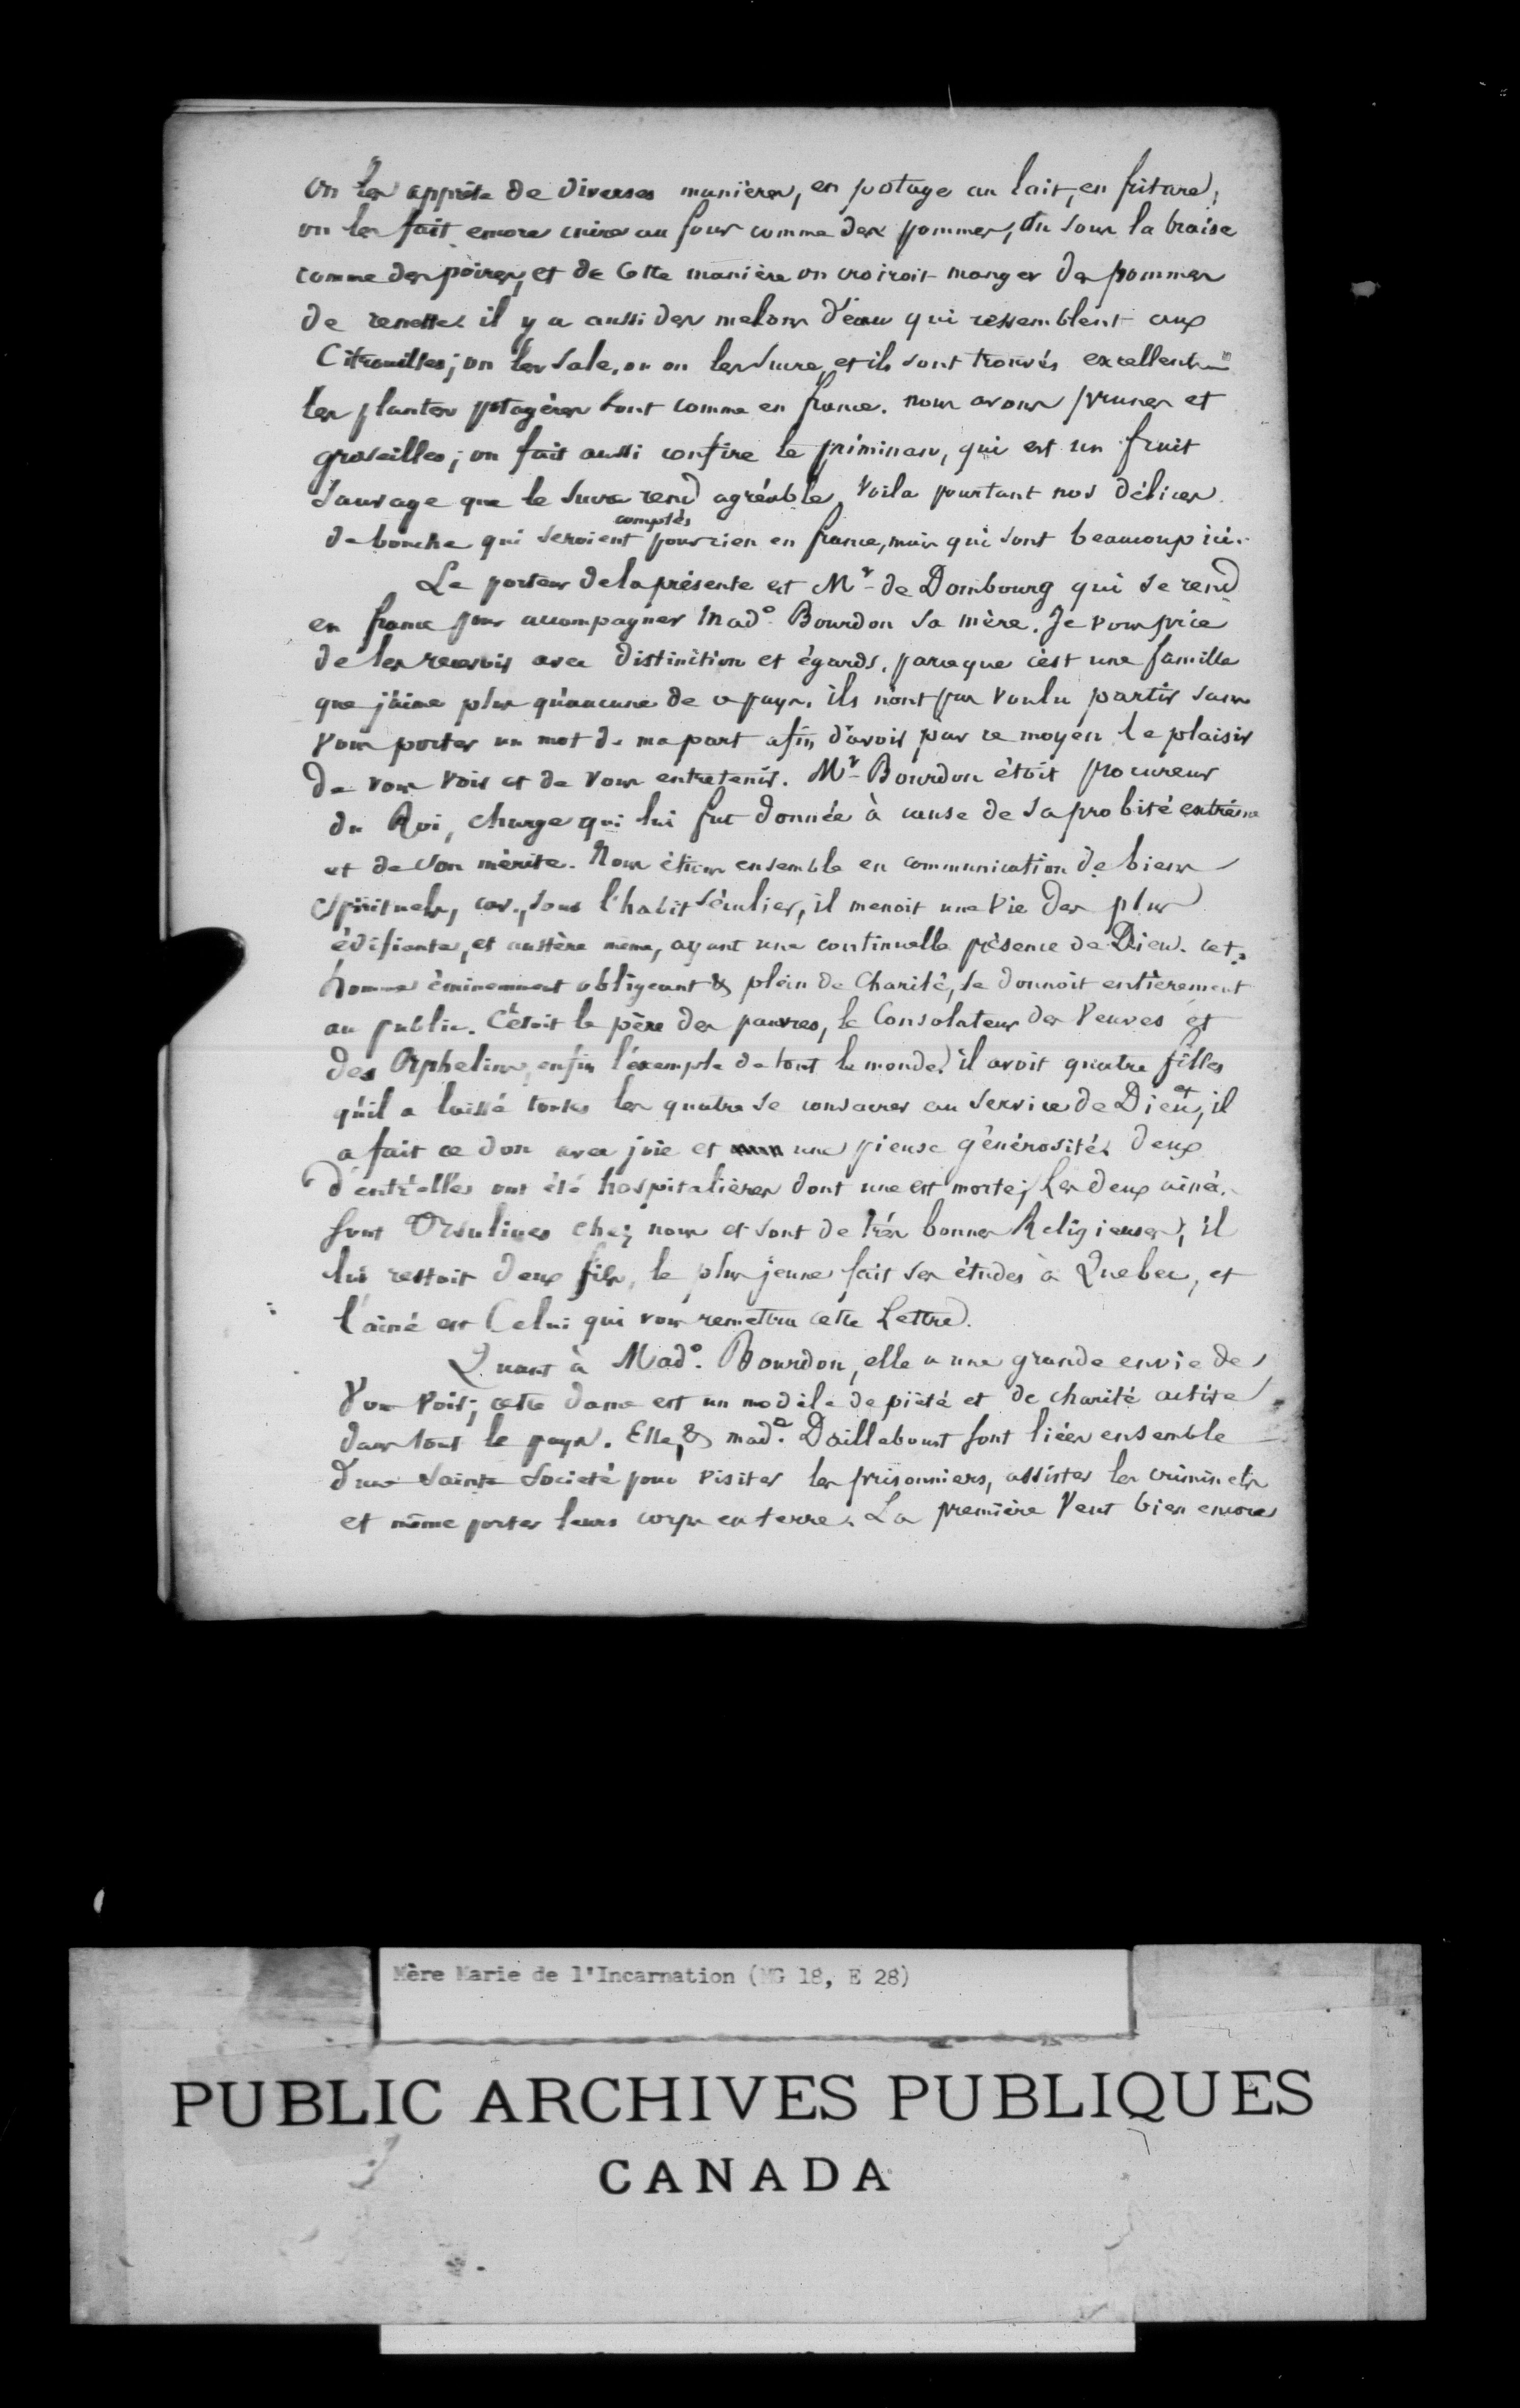 on les apprête de diverses manières, en potage au lait, en friture,
on les fait encore cuire au four comme des pommes, ou sous la braise
comme des poires, et de cette manière on croiroit manger des pommes
de renette. il y a aussi des melons d'eau qui ressemblent aux
Citrouilles; on les sale, ou on les sucre, et ils sont trouvés excellents
les plantes potagères sont comme en france. nous avons prunes et
groseilles; on fait aussi confire le piminan, qui est un fruit
sauvage que le sucre rend agréable. Voila pourtant nos délices
de bouche qui seroient comptés pour rien en france, mais qui sont beaucoup ici.
Le porteur de la présente est Mr. de Dombourg qui se rend
en france pour accompagner Made. Bourdon sa mère. Je vous prie
de les recevoir avec distinction et égards, parceque c'est une famille
que j'aime plus qu'aucune de ce pays. ils n'ont pas voulu partir sans
vous porter un mot de ma part afin d'avoir par ce moyen le plaisir
de vous voir et de vous entretenir. Mr. Bourdon étoit procureur
du Roi, charge qui lui fut donnée à cause de sa probité extrême
et de son mérite. Nous étions ensemble en communication de biens
spirituels, car, sous l'habit séculier, il menoit une vie des plus
édifiante, et austère même, ayant une continuelle présence de Dieu. cet
homme éminemment obligeant & plein de Charité, se donnoit entièrement
au public. C'étoit le père des pauvres, le Consolateur des Veuves et
des Orphelins, enfin l'exemple de tout le monde. il avoit quatre filles
qu'il a laissé toutes les quatre se consacrer au service de Dieu, et il
a fait ce don avec joie et une pieuse générosité. deux
d'entr'elles ont été hospitalières dont une est morte; les deux ainé.
sont Ursulines chez nous et sont de très bonnes Religieuses; il
lui restoit deux fils, le plus jeune fait ses études à Quebec, et
l'ainé est Celui qui vous remettra cette Lettre.
Quant à Made. Bourdon, elle a une grande envie de
vous voir; cette dame est un modèle de piété et de charité active
dans tout le pays. Elle, & made. Daillebout sont liées ensemble
d'une sainte Societé pour visiter les prisonniers, assister les criminels
et même porter leurs corps en terre. La première Veut bien encore
Mère Marie de l'Incarnation (MG 18, E 28)
PUBLIC ARCHIVES PUBLIQUES
CANADA